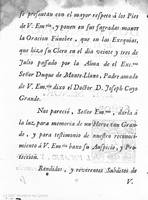 se presentan con el mayor respeto à los Pies
de V. Em.cia, y ponen en sus sagradas manos
la Oracion Funebre, que en las Exequias,
que hizo su Clero en el dia veinte y tres de
Julio passado por la Alma de el Exc.mo
Señor Duque de Monte-Llano, Padre amado
de V. Em.cia dixo el Doctor D. Joseph Cayo
Grande.
Nos pareció, Señor Em.mo, darla à
la luz, para memoria de un Heroe tan Gran-
de, y para testimonio de nuestro reconoci-
miento à V. Em.cia baxo su Auspicio, y Pro-
teccion.
Rendidos, y reverentes Subditos de
V. Em.cia